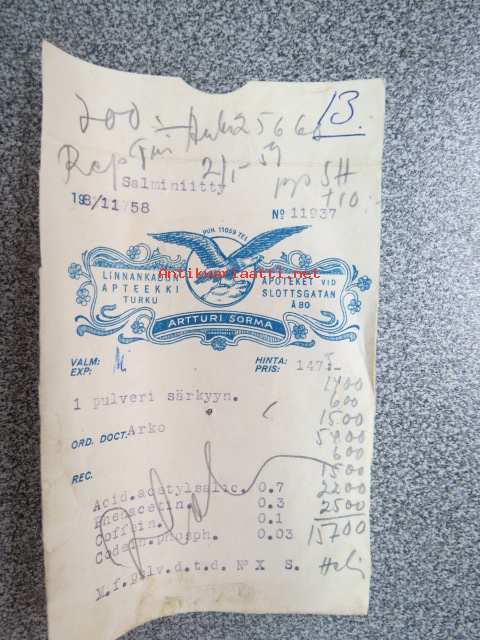 200
13.
Rep
2/1-59
Salminiitty
SH
198/11/58
Nº 11937
PUH. 11059 TEL
LINNANKA
APTEEKKI
TURKU
APOTEKET VID
SLOTTSGATAN
ÅBO
Antikvariaatti.net
ARTTURI SORMA
VALM:
EXP:
HINTA:
PRIS: 147:-
1 pulveri särkyyn.
1400
600
1500
ORD. DOCT. Arko
5400
600
1500
REC.
Acid.acetylsalic. 0.7
2200
Phenacetin. 0.3
2500
Coffein. 0.1
15700
Codein.phosph. 0.03
M.f.pulv.d.t.d. Nº X S.